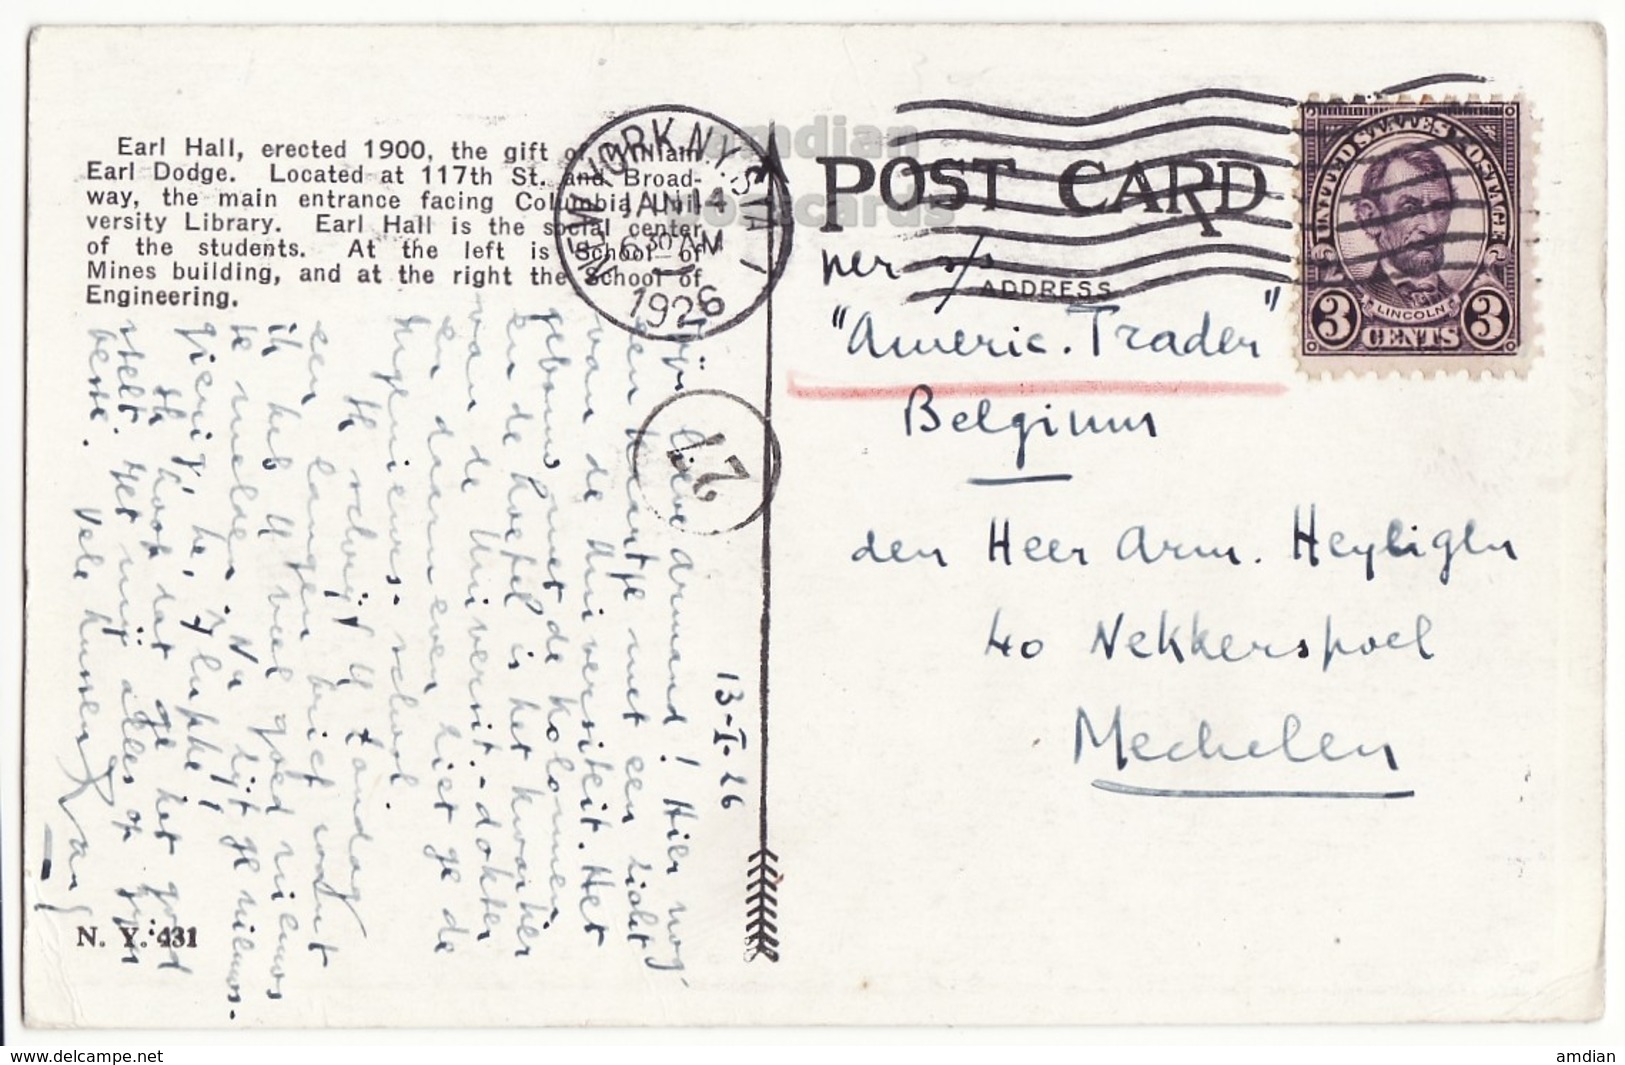 Earl Hall, erected 1900, the gift of William
Earl Dodge. Located at 117th St. and Broad-
way, the main entrance facing Columbia Uni-
versity Library. Earl Hall is the social center
of the students. At the left is School of
Mines building, and at the right the School of
Engineering.
NEW YORK, N.Y. STA
JAN 14
6 30 AM
1926
POST CARD
ADDRESS
UNITED STATES POSTAGE
LINCOLN
3 CENTS 3
per s/s
"Americ. Trader"
Belgium
den Heer Arm. Heyligen
40 Nekkerspoel
Mechelen
27
13-I-26
Mijn lieve Armand! Hier nog
een kaartje met een zicht
van de Universiteit. Het
gebouw met de kolommen
en de koepel is het kwartier
van de Universit.-dokter
en daarneven ziet ge de
Ingenieurs-school.
Ik schrijf U Zondag
een langen brief want
ik heb U veel goed nieuws
te melden. Nu zijt ge nieuws-
gierig, he,
Ik hoop dat ge het goed
stelt. Met mij alles op zijn
beste. Vele kussen
N. Y. 431
amdian
postcards
Le plus beau choix du net
amdian